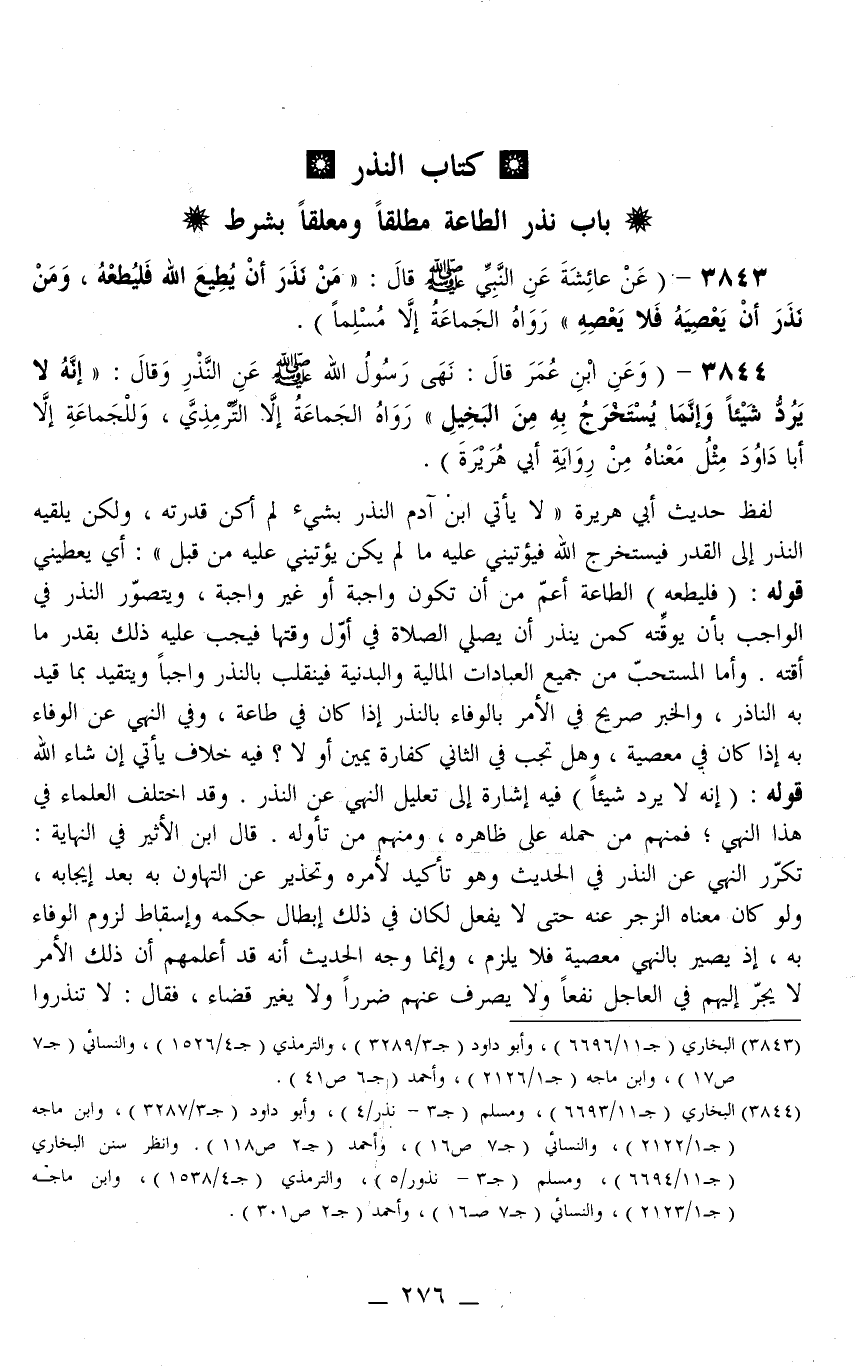 كتاب النذر
باب نذر الطاعة مطلقاً ومعلقاً بشرط
٣٨٤٣ - ( عَنْ عائِشَةَ عَنِ النَّبِّي ﷺ قالَ : « مَنْ نَذَرَ أنْ يُطِيعَ الله فَليُطعْهُ ، وَمَنْ
نَذَرَ أنْ يَعْصِيَهُ فَلا يَعْصِهِ » رَوَاهُ الجَماعَةُ إلَّا مُسْلِماً ) .
٣٨٤٤ - ( وَعَنِ ابْنِ عُمَرَ قالَ : نَهَى رَسُولُ الله ﷺ عَنِ النَّذْرِ وَقالَ : « إنَّهُ لا
يَرُدُّ شَيْئاً وَإنَّمَا يُسْتَخْرَجُ بِهِ مِنَ البَخِيلِ » رَوَاهُ الجَماعَةُ إلَّا التِّرْمِذِيَّ ، وَللْجَماعَةِ إلَّا
أبا دَاوُدَ مِثْلُ مَعْناهُ مِنْ رِوَايَةِ أبي هُرَيْرَةَ ) .
لفظ حديث أبي هريرة « لا يأتي ابن آدم النذر بشيء لم أكن قدرته ، ولكن يلقيه
النذر إلى القدر فيستخرج الله فيؤتيني عليه ما لم يكن يؤتيني عليه من قبل » : أي يعطيني
قوله : ( فليطعه ) الطاعة أعمّ من أن تكون واجبة أو غير واجبة ، ويتصوّر النذر في
الواجب بأن يوقِّته كمن ينذر أن يصلي الصلاة في أوّل وقتها فيجب عليه ذلك بقدر ما
أقته . وأما المستحبّ من جميع العبادات المالية والبدنية فينقلب بالنذر واجباً ويتقيد بما قيد
به الناذر ، والخبر صريح في الأمر بالوفاء بالنذر إذا كان في طاعة ، وفي النهي عن الوفاء
به إذا كان في معصية ، وهل تجب في الثاني كفارة يمين أو لا ؟ فيه خلاف يأتي إن شاء الله
قوله : ( إنه لا يرد شيئاً ) فيه إشارة إلى تعليل النهي عن النذر . وقد اختلف العلماء في
هذا النهي ؛ فمنهم من حمله على ظاهره ، ومنهم من تأوله . قال ابن الأثير في النهاية :
تكرّر النهي عن النذر في الحديث وهو تأكيد لأمره وتحذير عن التهاون به بعد إيجابه ،
ولو كان معناه الزجر عنه حتى لا يفعل لكان في ذلك إبطال حكمه وإسقاط لزوم الوفاء
به ، إذ يصير بالنهي معصية فلا يلزم ، وإنما وجه الحديث أنه قد أعلمهم أن ذلك الأمر
لا يجرّ إليهم في العاجل نفعاً ولا يصرف عنهم ضرراً ولا يغير قضاء ، فقال : لا تنذروا
(٣٨٤٣) البخاري ( جـ٦٦٩٦/١١ ) ، وأبو داود ( جـ٣٢٨٩/٣ ) ، والترمذي ( جـ١٥٢٦/٤ ) ، والنسائي ( جـ٧
ص١٧ ) ، وابن ماجه ( جـ٢١٢٦/١ ) ، وأحمد ( جـ٦ ص٤١ ) .
(٣٨٤٤) البخاري ( جـ٦٦٩٣/١١ ) ، ومسلم ( جـ٣ - نذر/٤ ) ، وأبو داود ( جـ٣٢٨٧/٣ ) ، وابن ماجه
( جـ٢١٢٢/١ ) ، والنسائي ( جـ٧ ص١٦ ) ، وأحمد ( جـ٢ ص١١٨ ) . وانظر سنن البخاري
( جـ٦٦٩٤/١١ ) ، ومسلم ( جـ٣ - نذور/٥ ) ، والترمذي ( جـ١٥٣٨/٤ ) ، وابن ماجـه
( جـ٢١٢٣/١ ) ، والنسائي ( جـ٧ صـ١٦ ) ، وأحمد ( جـ٢ ص٣٠١ ) .
_ ٢٧٦ _